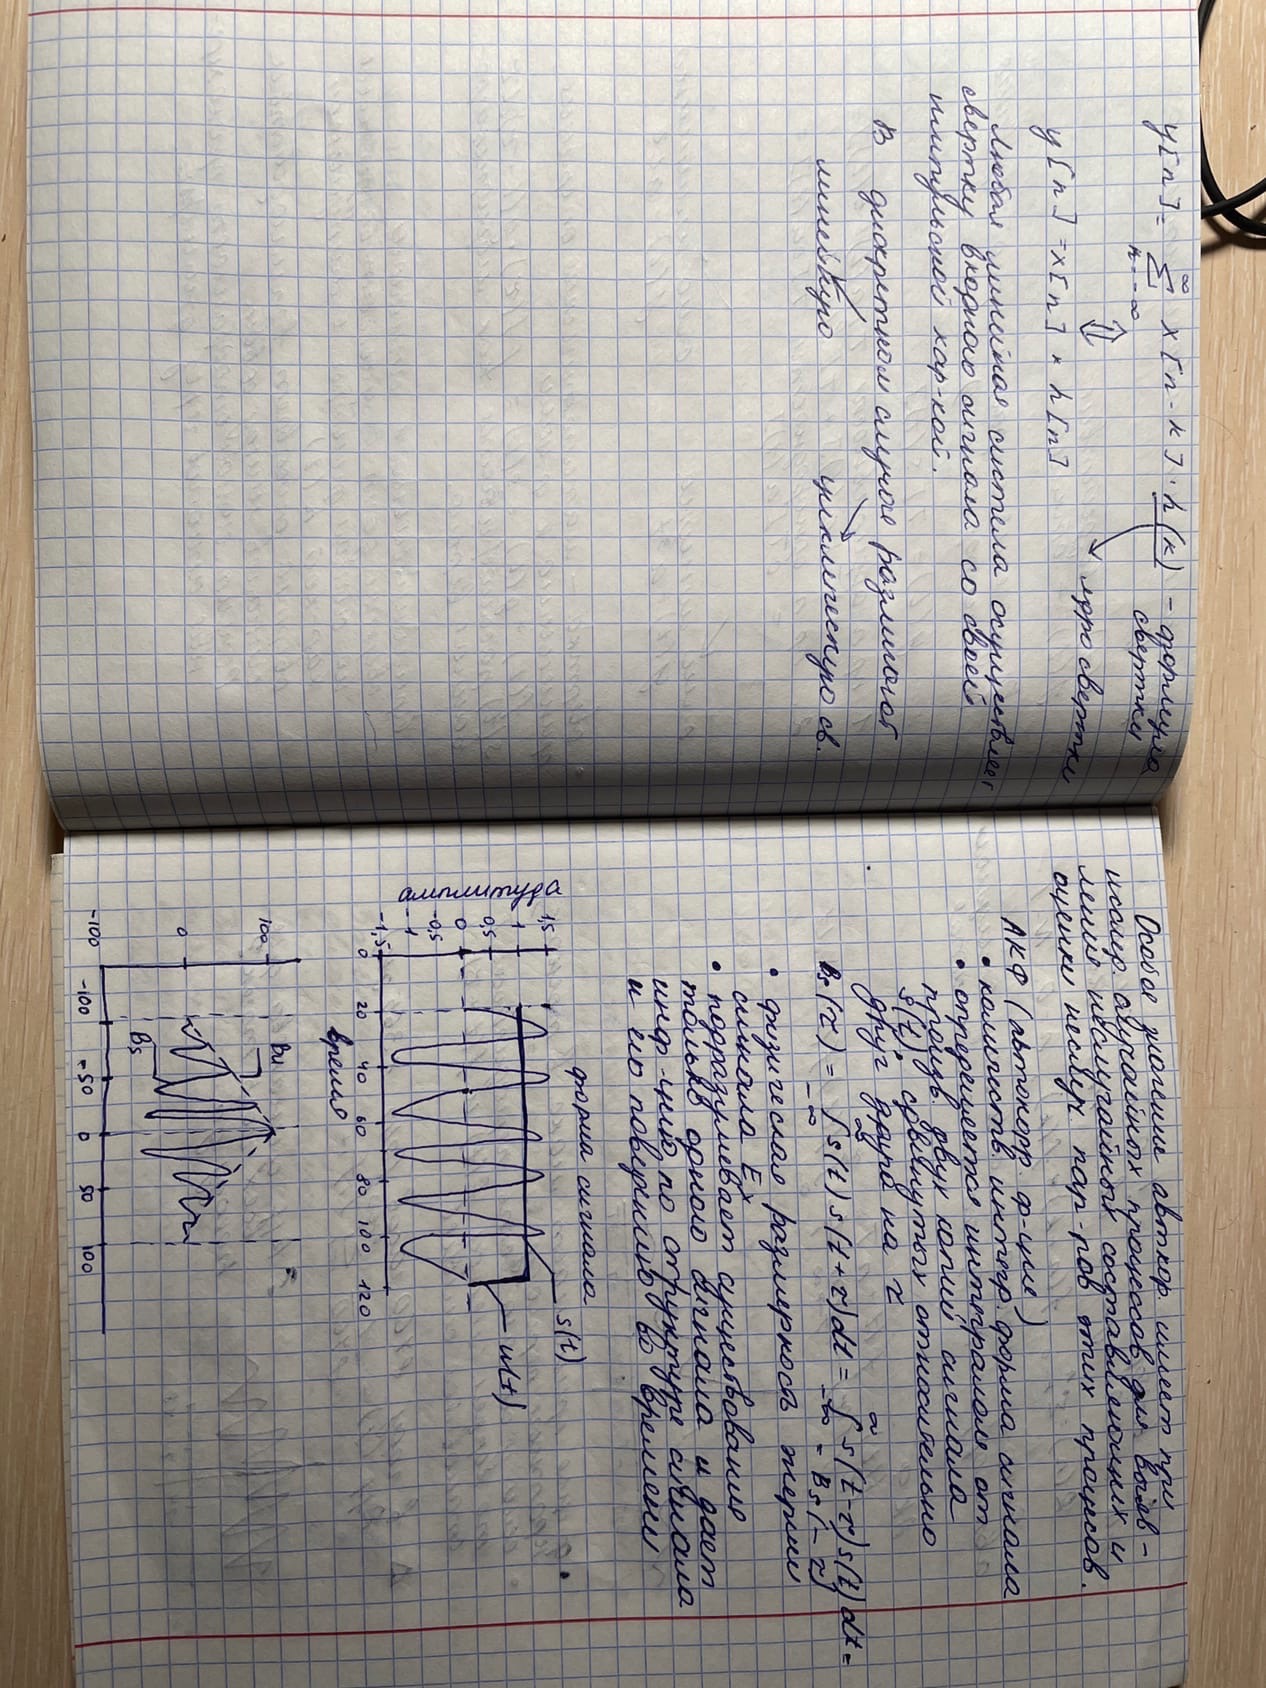 y[n] = ∑ x[n-k] · h(k) – формула
∞
n=-∞
свертки
ядро свертки
y[n] = x[n] * h[n]
Любая линейная система осуществляет
свертку входного сигнала со своей
импульсной хар-кой.
В дискретном случае различают
линейную циклическую св.
Особое значение авткор. имеет при
исслед. случайных процессов для выяв-
ления неслучайных составляющих и
оценки неслуч. пар-ров этих процесов.
АКФ (автокорр. ф-ция)
• количеств. интегр. форма сигнала
• определяется интегралом от
произв. двух копий сигнала
s(t), сдвинутых относительно
друг друга на τ
Bs(τ) = ∫ s(t) s(t+τ)dt = ∫ s(t-τ)s(t)dt =
∞ ∞
-∞ -∞
= Bs(-τ)
• физическая размерность энергии
сигнала Ex
• подразумевает существование
только одного сигнала и дает
инф-цию по структуре сигнала
и его поведению во времени
форма сигнала
s(t)
u(t)
амплитуда
1,5
1
0,5
0
-0,5
-1
-1,5
0 20 40 60 80 100 120
время
Bu
100
0
Bs
-100
-100 -50 0 50 100